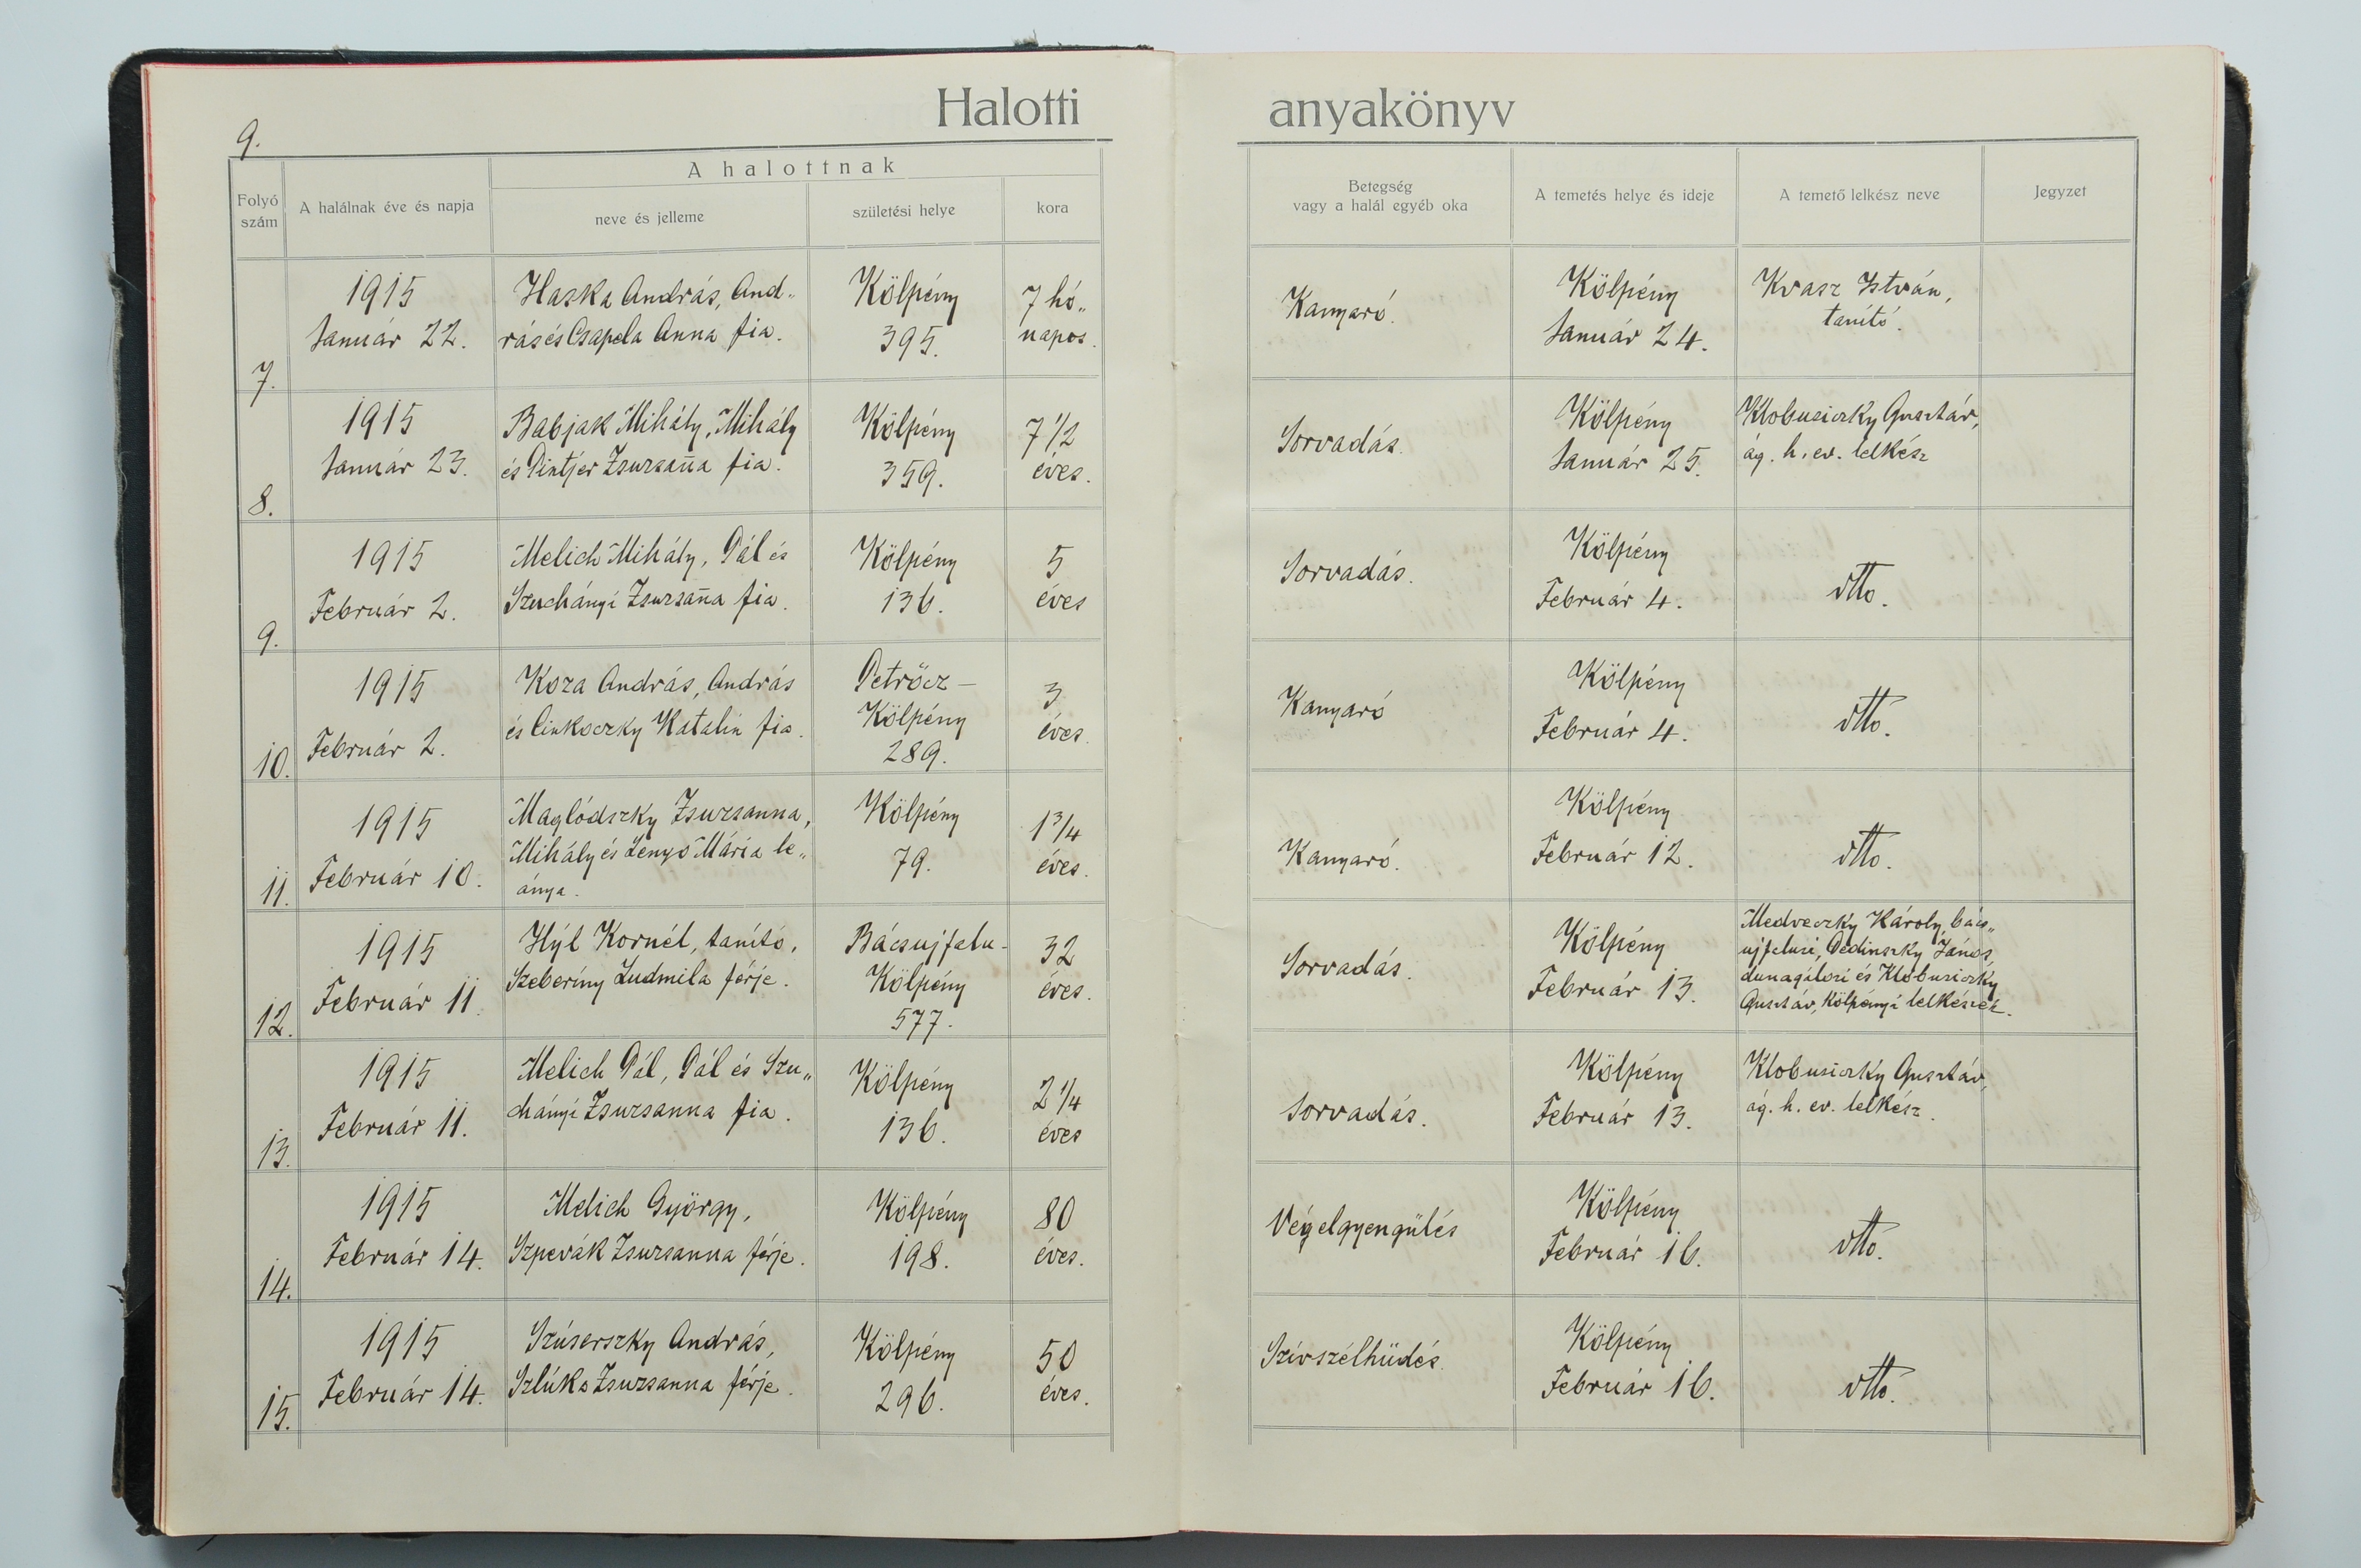 Halotti anyakönyv
9.
Folyó szám
A halálnak éve és napja
A halottnak
neve és jelleme
születési helye
kora
Betegség
vagy a halál egyéb oka
A temetés helye és ideje
A temető lelkész neve
Jegyzet
7.
1915
Január 22.
Haska András, And„
rás és Csapela Anna fia.
Kölpény
395.
7 hó„
napos.
Kanyaró.
Kölpény
Január 24.
Kvasz István,
tanító.
8.
1915
Január 23.
Babjak Mihály, Mihály
és Pintjer Zsuzsan̄a fia.
Kölpény
359.
7 1/2
éves.
Sorvadás.
Kölpény
Január 25.
Klobusiczky Gusztáv,
ág. h. ev. lelkész
9.
1915
Február 2.
Melich Mihály, Pál és
Szuchányi Zsuzsan̄a fia.
Kölpény
136.
5
éves
Sorvadás.
Kölpény
Február 4.
dtto.
10.
1915
Február 2.
Koza András, András
és Cinkoczky Katalin fia.
Petrőcz –
Kölpény
289.
3
éves.
Kanyaró
Kölpény
Február 4.
dtto.
11.
1915
Február 10.
Maglódszky Zsuzsanna,
Mihály és Lenyo Mária le„
ánya.
Kölpény
79.
1 3/4
éves.
Kanyaró.
Kölpény
Február 12.
dtto.
12.
1915
Február 11.
Hýl Kornél, tanító,
Szeberíny Ludmila férje.
Bácsujfalu -
Kölpény
577.
32
éves.
Sorvadás.
Kölpény
Február 13.
Medveczky Károly, bács„
ujfalusi, Dedinszky János,
dunagálosi és Klobusiczky
Gusztáv, kölpényi lelkészek.
13.
1915
Február 11.
Melich Pál, Pál és Szu„
chányi Zsuzsanna fia.
Kölpény
136.
2 1/4
éves
Sorvadás.
Kölpény
Február 13.
Klobusiczky Gusztáv,
ág. h. ev. lelkész.
14.
1915
Február 14.
Melich György,
Szpevák Zsuzsanna férje.
Kölpény
198.
80
éves.
Végelgyengülés
Kölpény
Február 16.
dtto.
15.
1915
Február 14.
Szúserszky András,
Szlúka Zsuzsanna férje.
Kölpény
296.
50
éves.
Szívszélhüdés.
Kölpény
Február 16.
dtto.